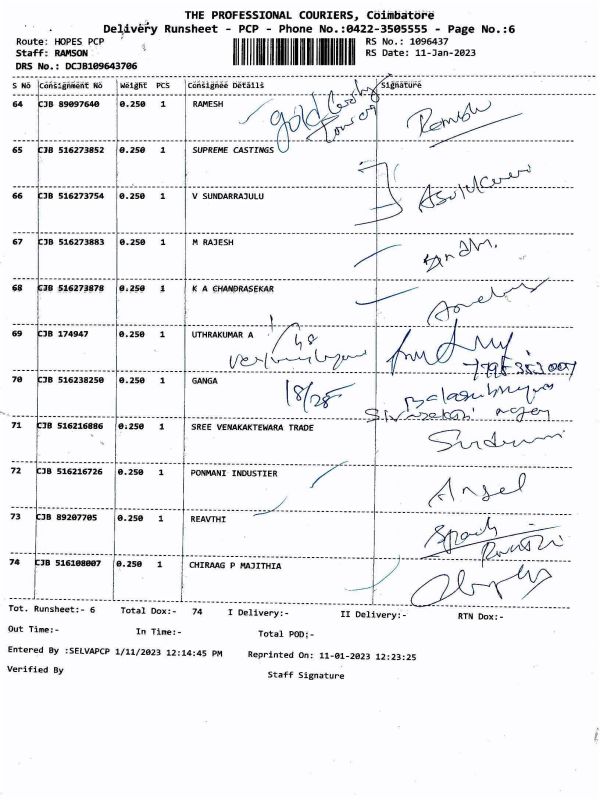 THE PROFESSIONAL COURIERS, Coimbatore
Delivery Runsheet - PCP - Phone No.:0422-3505555 - Page No.:6
Route: HOPES PCP RS No.: 1096437
Staff: RAMSON RS Date: 11-Jan-2023
DRS No.: DCJB109643706
S No Consignment No Weight PCS Consignee Details Signature
64 CJB 89097640 0.250 1 RAMESH gold Ramesh
65 CJB 516273852 0.250 1 SUPREME CASTINGS
66 CJB 516273754 0.250 1 V SUNDARRAJULU
67 CJB 516273883 0.250 1 M RAJESH
68 CJB 516273878 0.250 1 K A CHANDRASEKAR
69 CJB 174947 0.250 1 UTHRAKUMAR A
70 CJB 516238250 0.250 1 GANGA 18/28
71 CJB 516216886 0.250 1 SREE VENAKAKTEWARA TRADE
72 CJB 516216726 0.250 1 PONMANI INDUSTIER Angel
73 CJB 89207705 0.250 1 REAVTHI
74 CJB 516108007 0.250 1 CHIRAAG P MAJITHIA
Tot. Runsheet:- 6 Total Dox:- 74 I Delivery:- II Delivery:- RTN Dox:-
Out Time:- In Time:- Total POD;-
Entered By :SELVAPCP 1/11/2023 12:14:45 PM Reprinted On: 11-01-2023 12:23:25
Verified By Staff Signature